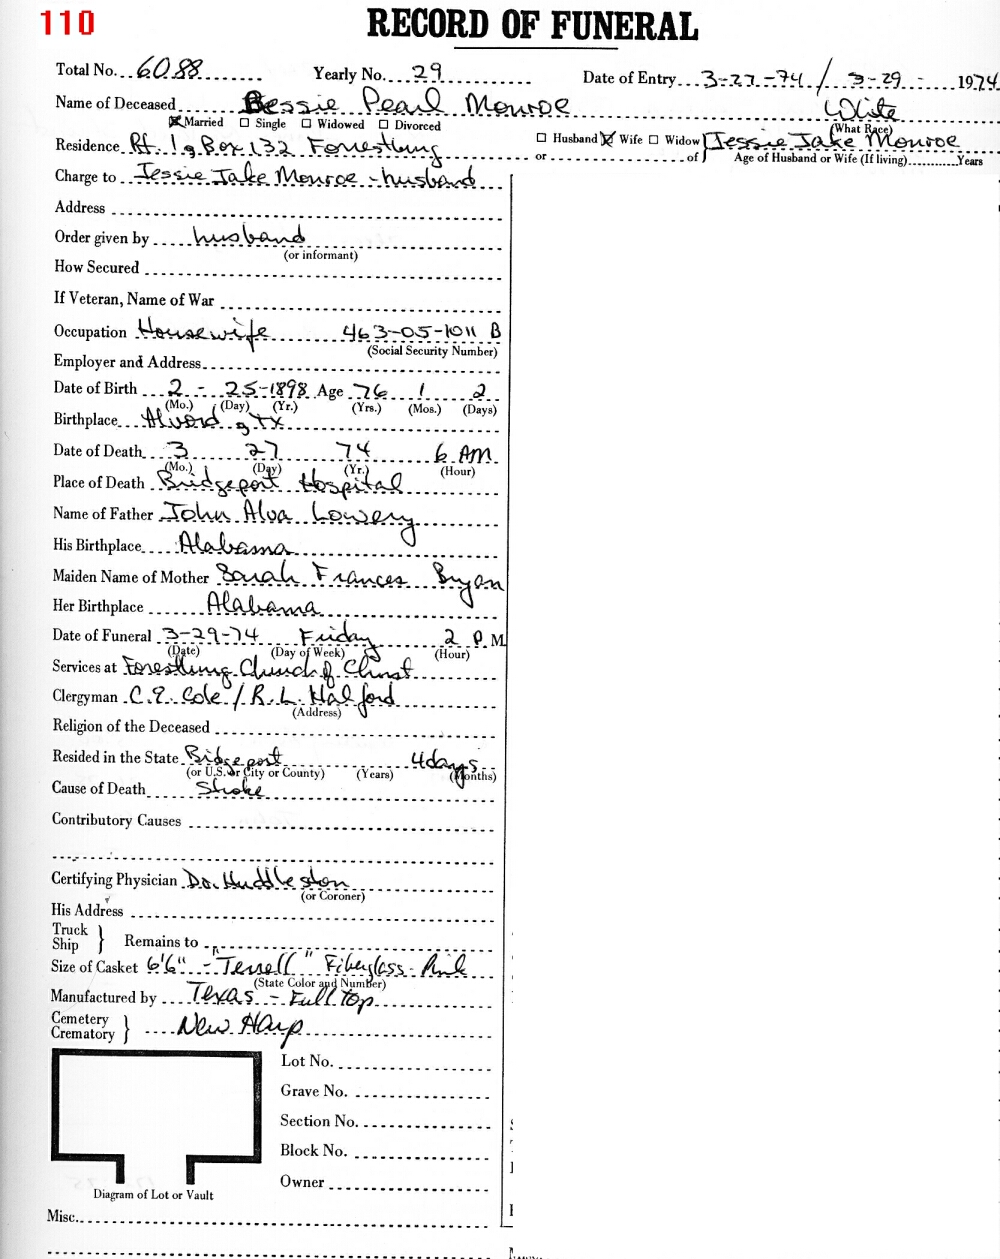 110
RECORD OF FUNERAL
Total No. 6088 Yearly No. 29 Date of Entry 3-27-74 / 3-29- 1974
Name of Deceased Bessie Pearl Monroe White
☒ Married ☐ Single ☐ Widowed ☐ Divorced (What Race)
Residence Rt. 1, Box 132 Forrestburg ☐ Husband ☒ Wife ☐ Widow Jessie Jake Monroe
or of Age of Husband or Wife (If living) Years
Charge to Jessie Jake Monroe - husband
Address
Order given by husband
(or informant)
How Secured
If Veteran, Name of War
Occupation Housewife 463-05-1011 B
(Social Security Number)
Employer and Address
Date of Birth 2 - 25-1898 Age 76 1 2
(Mo.) (Day) (Yr.) (Yrs.) (Mos.) (Days)
Birthplace Alvord, TX
Date of Death 3 27 74 6 AM
(Mo.) (Day) (Yr.) (Hour)
Place of Death Bridgeport Hospital
Name of Father John Alva Lowery
His Birthplace Alabama
Maiden Name of Mother Sarah Frances Bryan
Her Birthplace Alabama
Date of Funeral 3-29-74 Friday 2 P.M
(Date) (Day of Week) (Hour)
Services at Forestburg Church of Christ
Clergyman C.E. Cole / R.L. Halford
(Address)
Religion of the Deceased
Resided in the State Bridgeport 4 days
(or U.S. or City or County) (Years) (Months)
Cause of Death Stroke
Contributory Causes
Certifying Physician Dr. Huddleston
(or Coroner)
His Address
Truck
Ship } Remains to
Size of Casket 6'6" - "Terrell" Fiberglass - Pink
(State Color and Number)
Manufactured by Texas - Full top
Cemetery
Crematory } New Harp
Lot No.
Grave No.
Section No.
Block No.
Owner
Diagram of Lot or Vault
Misc.